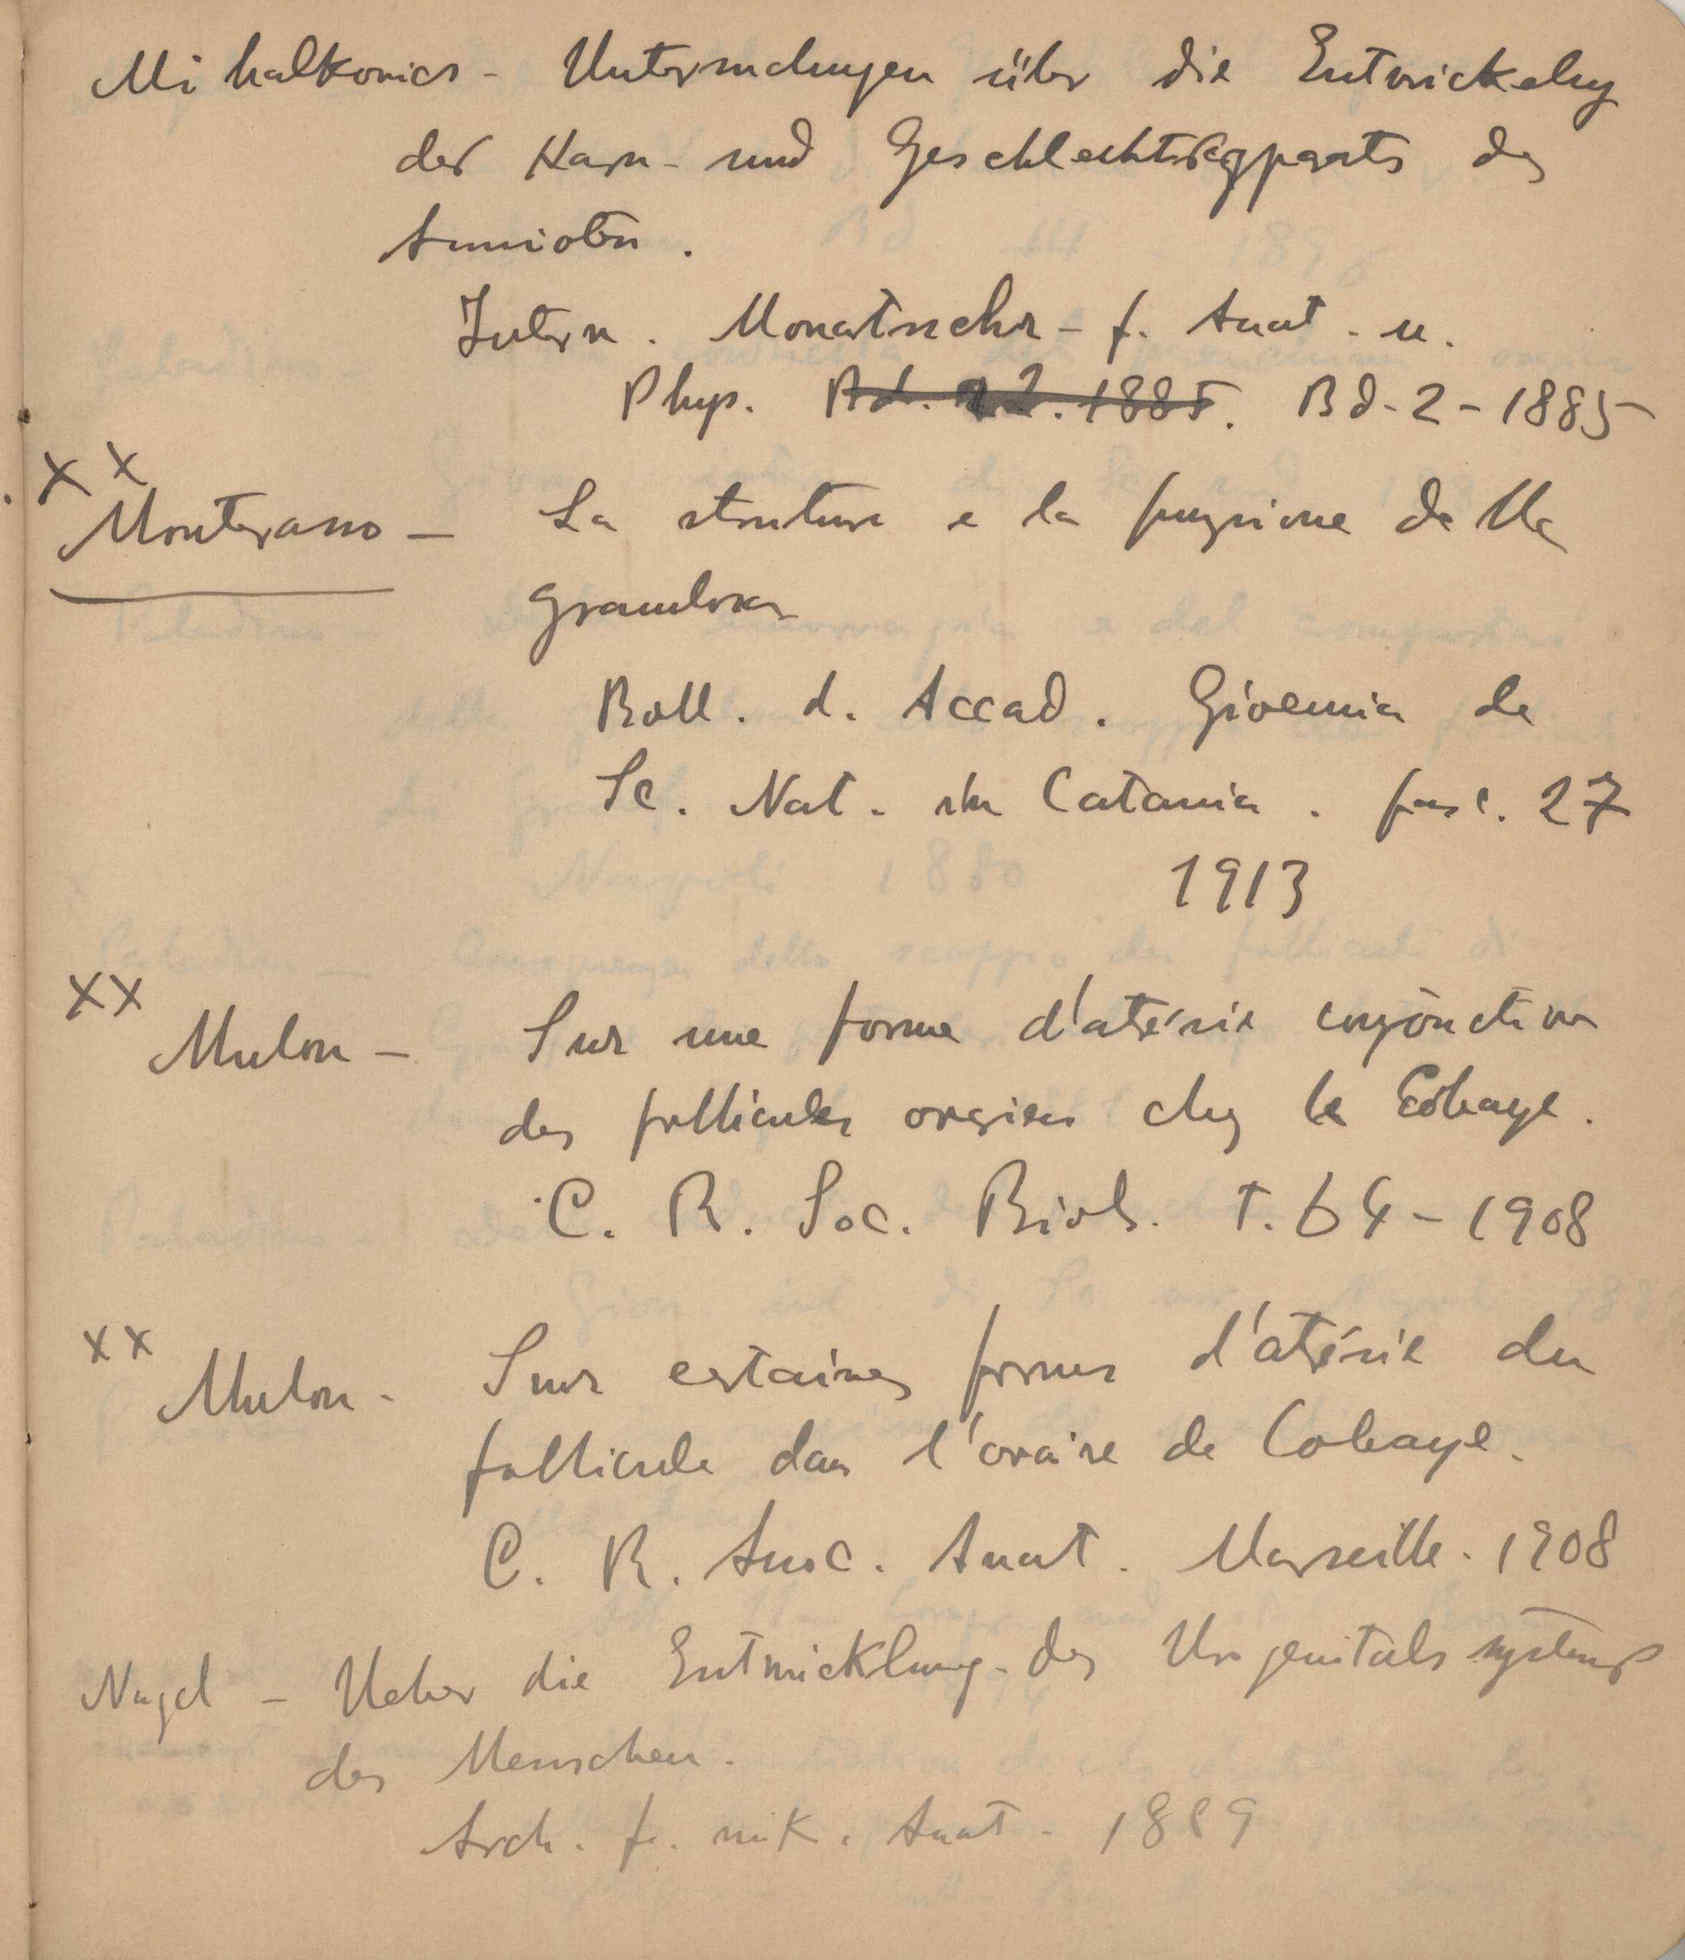 Mihalkovics - Untersuchungen über die Entwickelung
des Harn- und Geschlechtsapparats des
Amnioten.
Intern. Monatschr - f. Anat. u.
Phys. Bd. 22. 1885. Bd. 2 - 1885
XX
Monterosso - La struttura e la funzione della
granulosa
Boll. d. Accad. Gioenia de
Sc. Nat. in Catania. fasc. 27
1913
XX
Mulon - Sur une forme d'atrésie conjonctive
des follicules ovariens chez le Cobaye.
C. R. Soc. Biol. T. 64 - 1908
XX
Mulon - Sur certaines formes d'atrésie du
follicule dans l'ovaire de Cobaye.
C. R. Assoc. Anat. Marseille. 1908
Nagel - Ueber die Entwicklung des Urogenitalsystems
des Menschen.
Arch. f. mik. Anat. 1889